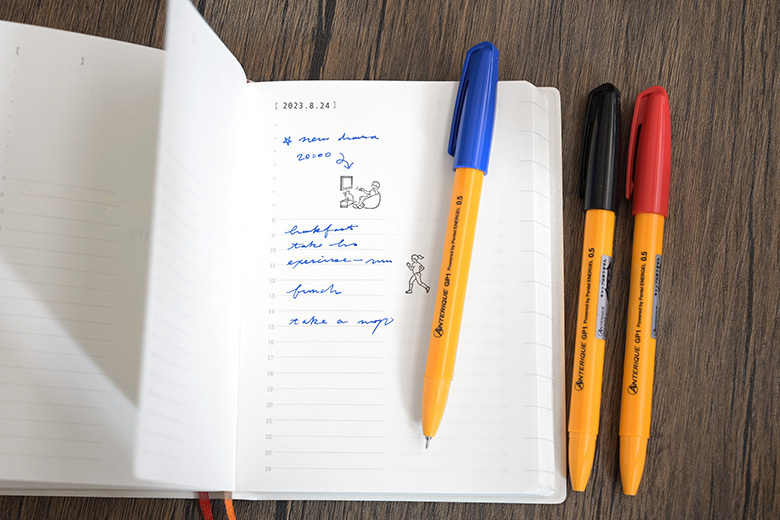 [ 2023.8.24 ]
☆ new drama
20:00
8
9
10
11
12
13
14
15
16
17
18
19
20
21
22
23
24
take
exercise – run
lunch
take a nap
ANTERIQUE GP1 Powered by Pentel ENERGEL 0.5
ANTERIQUE GP1 Powered by Pentel ENERGEL 0.5
ANTERIQUE GP1 Powered by Pentel ENERGEL 0.5